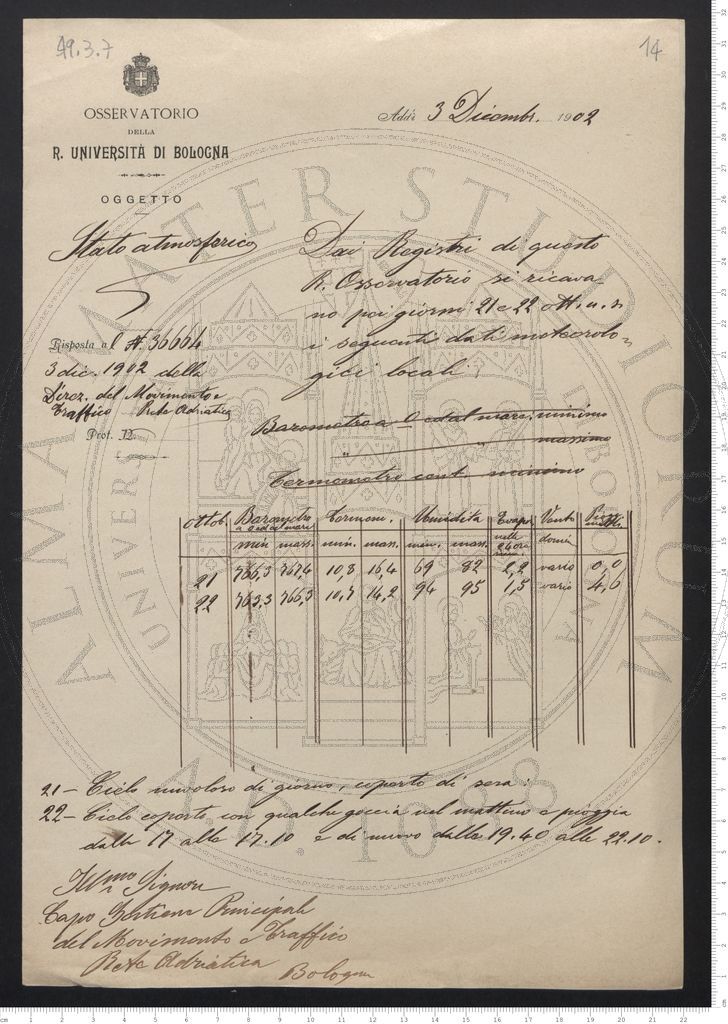 A9.3.7
14
OSSERVATORIO
DELLA
R. UNIVERSITÀ DI BOLOGNA
OGGETTO
Addì 3 Dicemb. 1902
Stato atmosferico
Risposta a l N. 36664
3 dic. 1902 della
Direz. del Movimento e
Traffico Rete Adriatica
Prot. N.
Dai Registri di questo
R. Osservatorio si ricava
no pei giorni 21 e 22 ott. u. s.
i seguenti dati meteorolo
gici locali:
Barometro a 0 e dal mare: minimo
" " massimo
Termometro cent. minimo
ottob. Barometro Termom. Umidità Evapor. Vento
a 0 e dal mare nelle 24 ore domin.
min. mass. min. mass. min. mass.
21 766,3 767,4 10,8 16,4 69 82 2,2 vario 0,0
22 763,3 766,3 10,7 14,2 94 95 1,5 vario 4,6
21 – Cielo nuvoloso di giorno, coperto di sera.
22 – Cielo coperto con qualche goccia nel mattino e pioggia
dalle 17 alle 17.10 e di nuovo dalle 19.40 alle 22.10.
Ill.mo Signor
Capo Sezione Principale
del Movimento e Traffico
Rete Adriatica
Bologna
ALMA MATER STUDIORUM
A.D. 1088